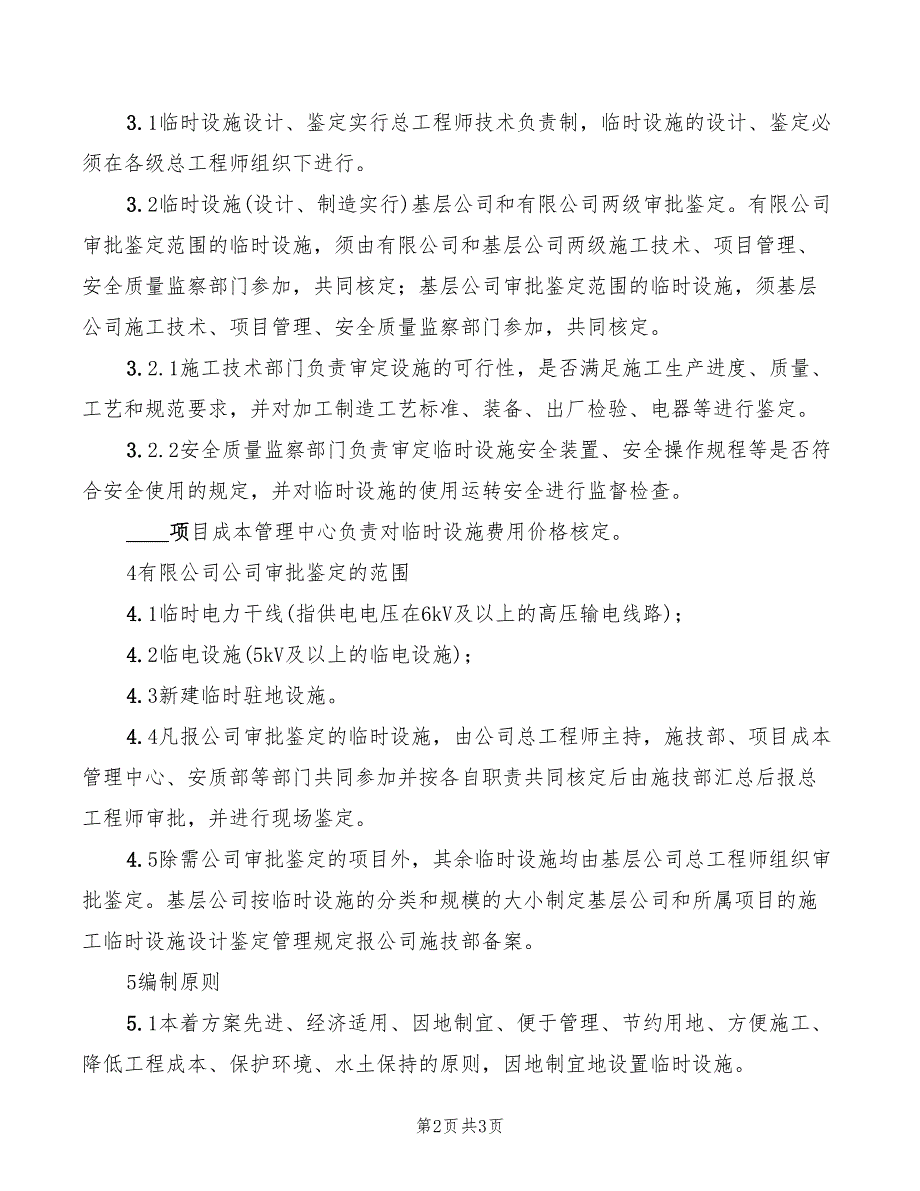 3.1临时设施设计、鉴定实行总工程师技术负责制，临时设施的设计、鉴定必
须在各级总工程师组织下进行。
3.2临时设施(设计、制造实行)基层公司和有限公司两级审批鉴定。有限公司
审批鉴定范围的临时设施，须由有限公司和基层公司两级施工技术、项目管理、
安全质量监察部门参加，共同核定；基层公司审批鉴定范围的临时设施，须基层
公司施工技术、项目管理、安全质量监察部门参加，共同核定。
3.2.1施工技术部门负责审定设施的可行性，是否满足施工生产进度、质量、
工艺和规范要求，并对加工制造工艺标准、装备、出厂检验、电器等进行鉴定。
3.2.2安全质量监察部门负责审定临时设施安全装置、安全操作规程等是否符
合安全使用的规定，并对临时设施的使用运转安全进行监督检查。
____项目成本管理中心负责对临时设施费用价格核定。
4有限公司公司审批鉴定的范围
4.1临时电力干线(指供电电压在6kV及以上的高压输电线路)；
4.2临电设施(5kV及以上的临电设施)；
4.3新建临时驻地设施。
4.4凡报公司审批鉴定的临时设施，由公司总工程师主持，施技部、项目成本
管理中心、安质部等部门共同参加并按各自职责共同核定后由施技部汇总后报总
工程师审批，并进行现场鉴定。
4.5除需公司审批鉴定的项目外，其余临时设施均由基层公司总工程师组织审
批鉴定。基层公司按临时设施的分类和规模的大小制定基层公司和所属项目的施
工临时设施设计鉴定管理规定报公司施技部备案。
5编制原则
5.1本着方案先进、经济适用、因地制宜、便于管理、节约用地、方便施工、
降低工程成本、保护环境、水土保持的原则，因地制宜地设置临时设施。
第2页共3页